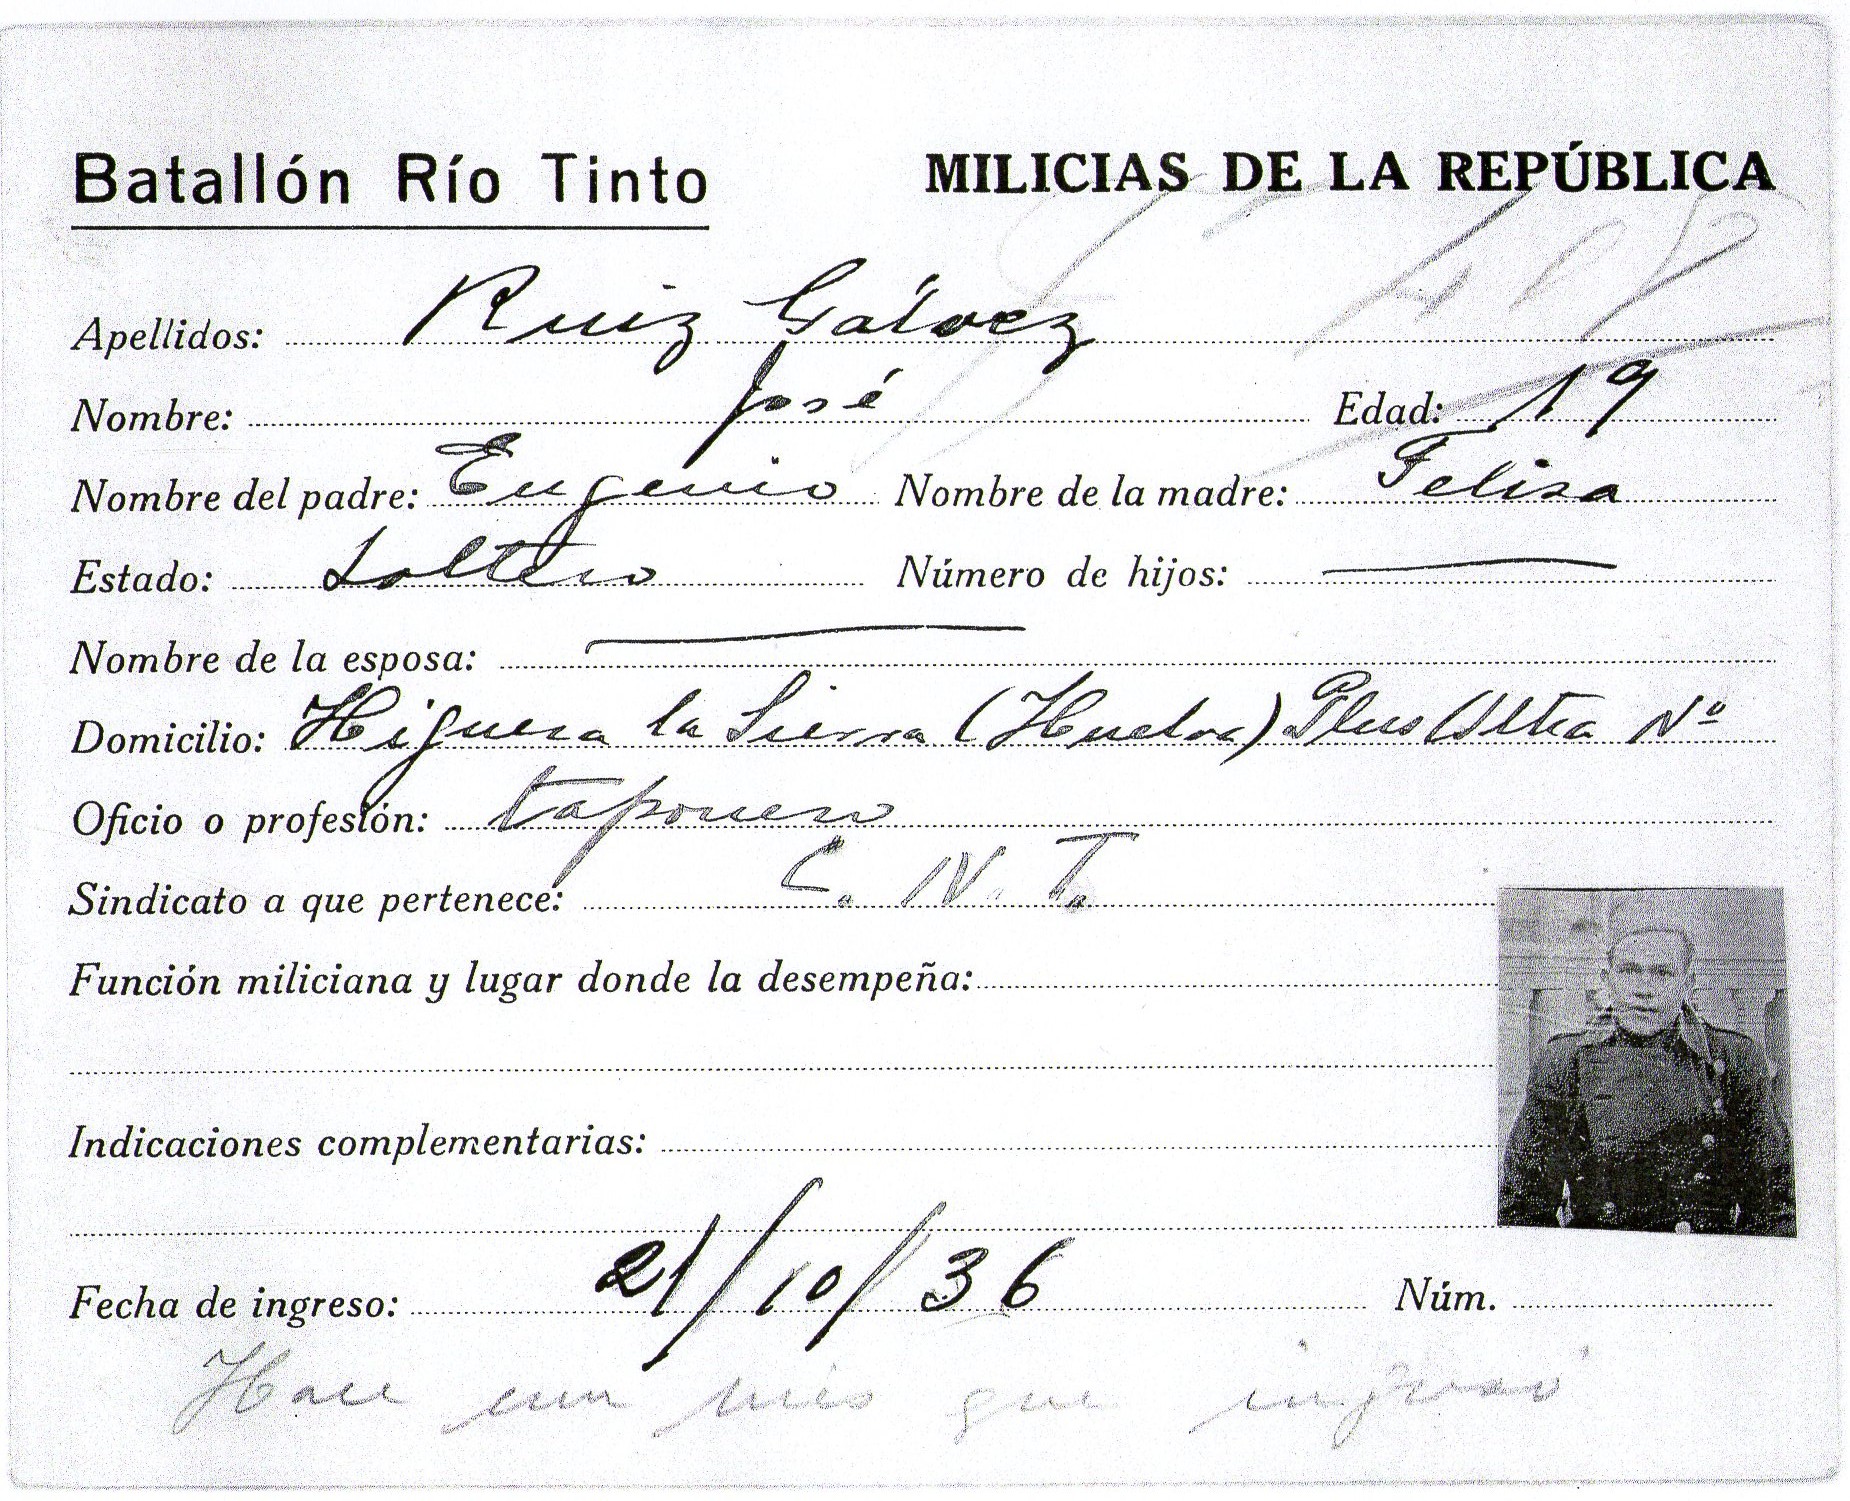 Batallón Río Tinto MILICIAS DE LA REPÚBLICA
Apellidos: Ruiz Gálvez
Nombre: José Edad: 19
Nombre del padre: Eugenio Nombre de la madre: Felisa
Estado: Soltero Número de hijos:
Nombre de la esposa:
Domicilio: Higuera la Sierra (Huelva) Plus Ultra Nº
Oficio o profesión: taponero
Sindicato a que pertenece: C. N. T.
Función miliciana y lugar donde la desempeña:
Indicaciones complementarias:
Fecha de ingreso: 21/10/36 Núm.
Hace un mes que ingresó